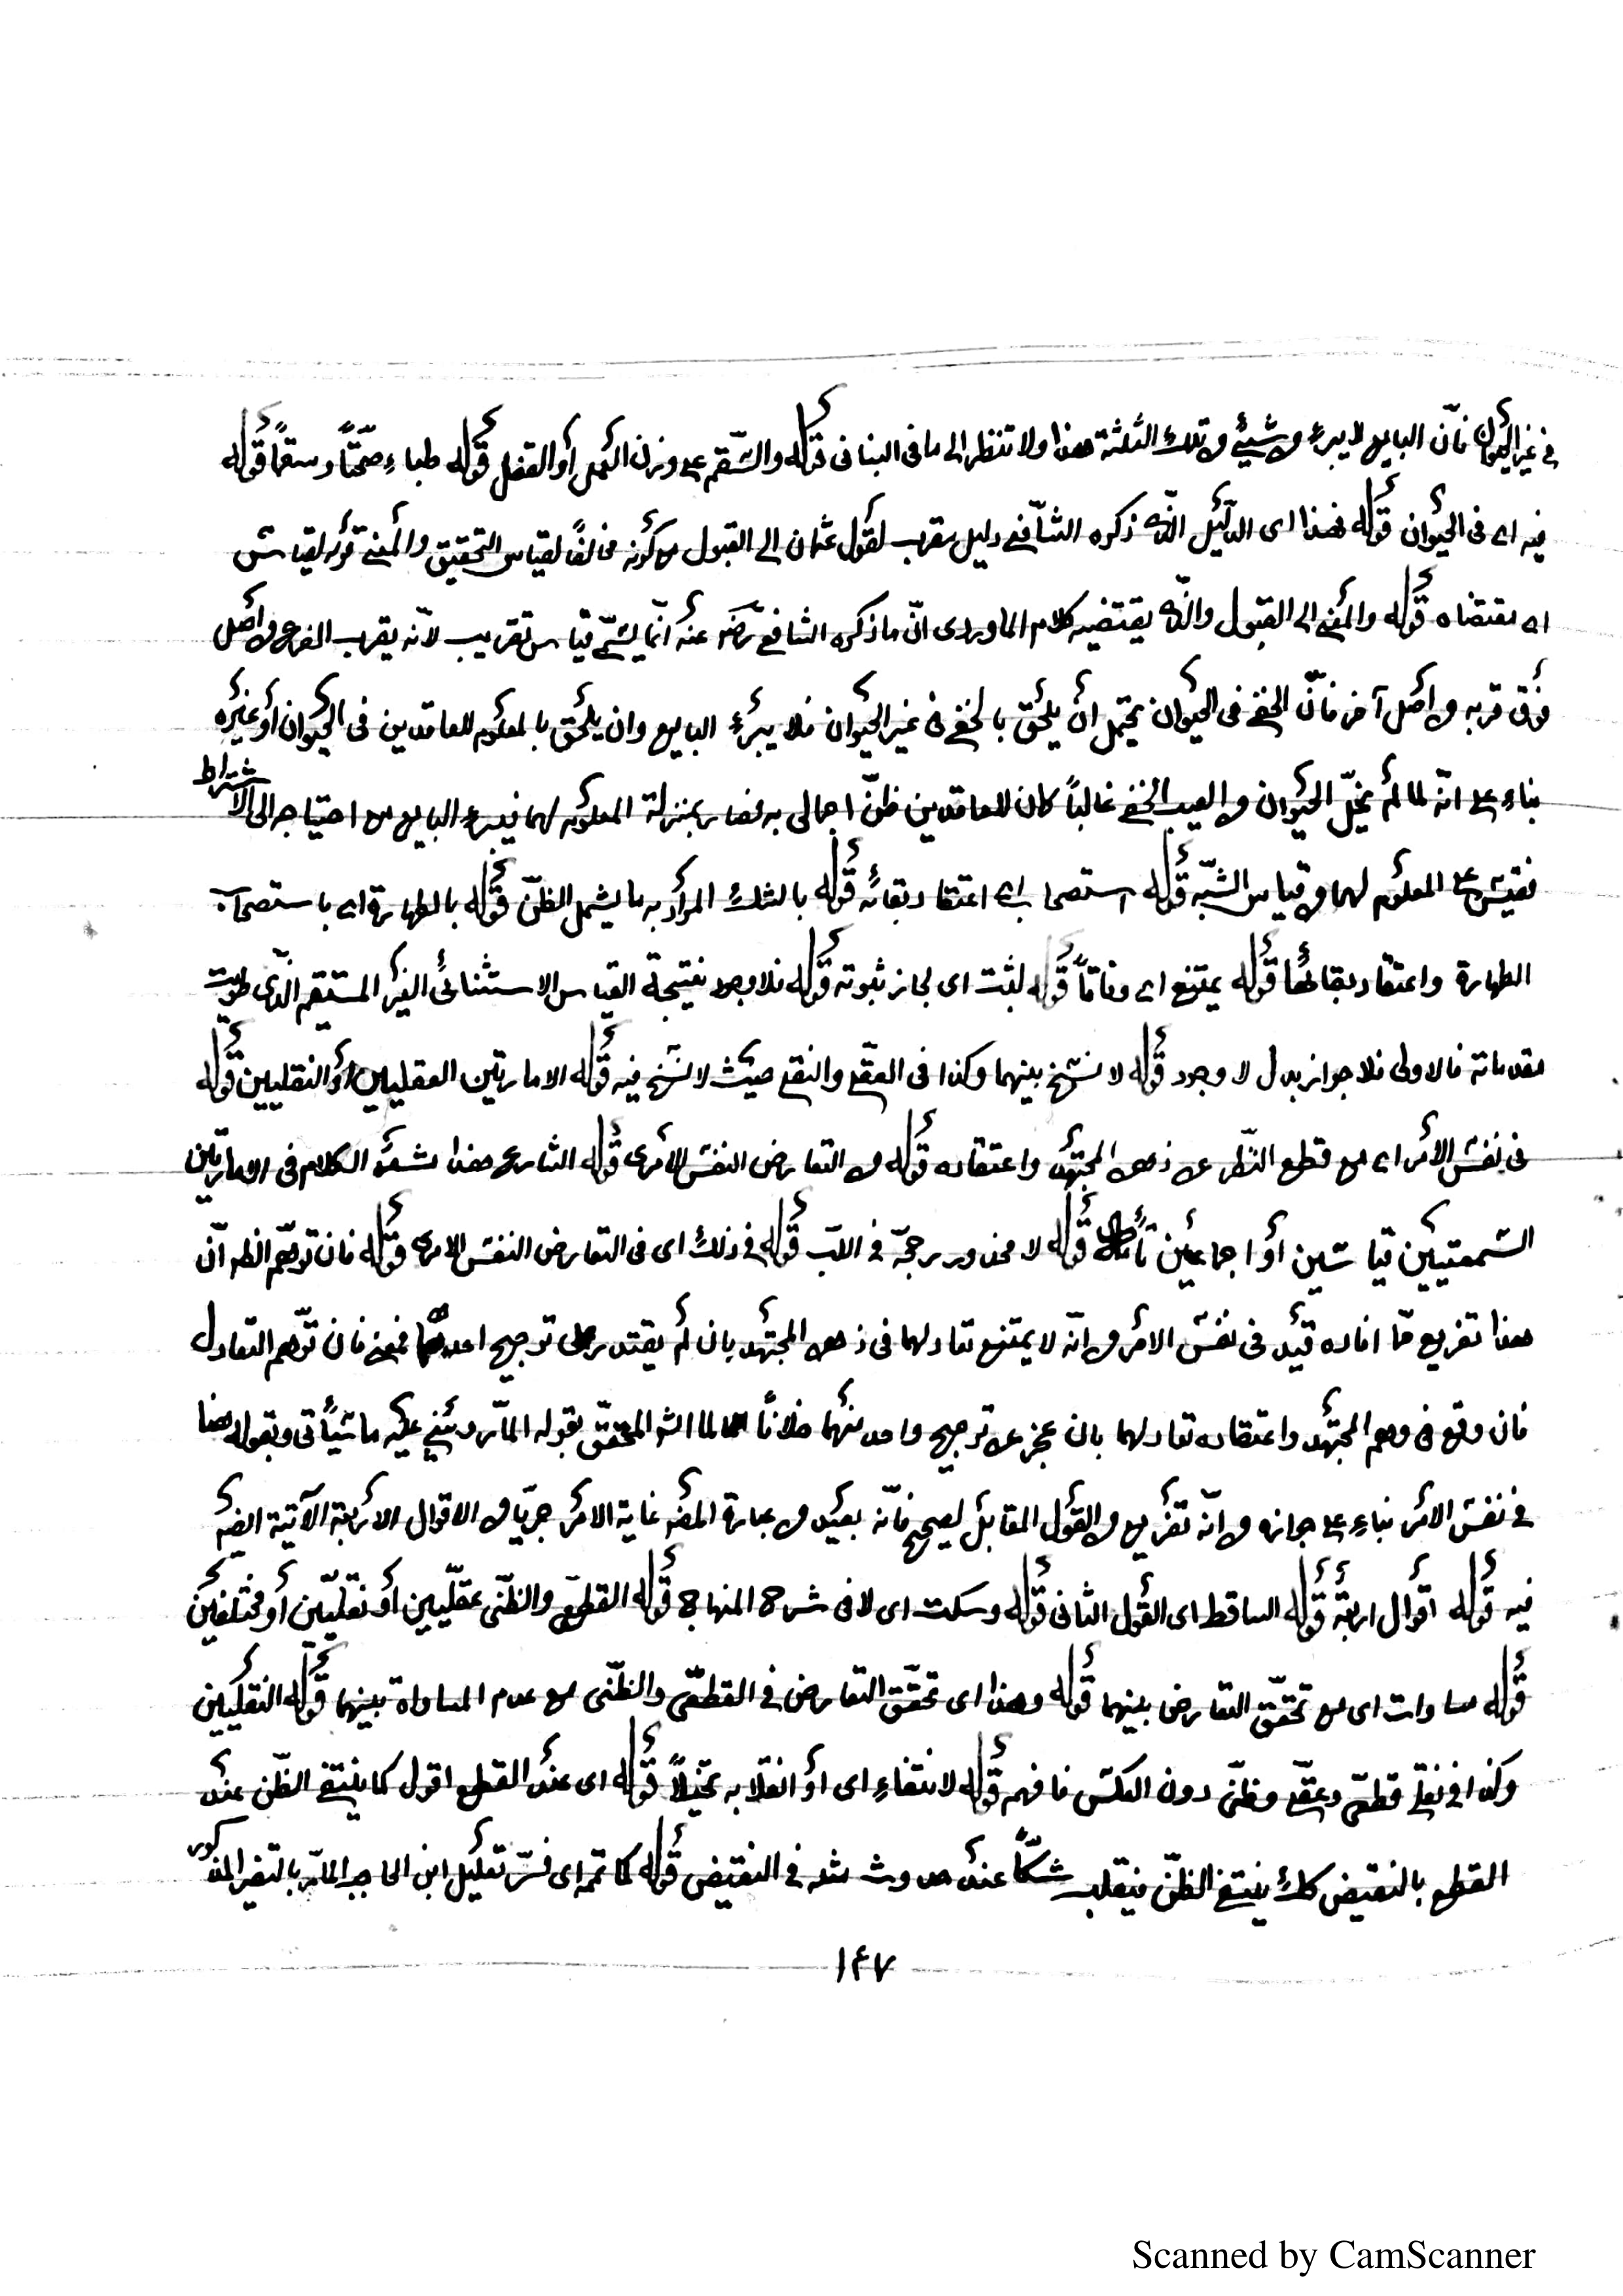 في غير الحيوان فانّ البايع لا يبرء من شيئ من تلك الثلثة هذا ولا تنظر الى ما فى البنانى قوله والسّقم على وزن الجمل أو القفل قوله طباء صحّتًا وسقمًا قوله
فيه اى فى الحيوان قوله فهذا اى الدّليل الذى ذكره الشافعى دليل مقرب لقول عثمان الى القبول من كونه مخالفًا لقياس التحقيق والمعنى قوله لقياس
اى مقتضاه قوله والمعنى الى القبول والذى يقتضيه كلام الماوردى انّ ما ذكره الشافعى رضى عنه انّما يسمّى قياس تقريب لأنّه يقرب الفرع من أصل
فوق قربه من اصل آخر فانّ الخفى فى الحيوان يحتمل ان يلحق بالخفى فى غير الحيوان فلا يبرء البايع وان يلحق بالمعلوم للعاقدين فى الحيوان أو غيره
بناء على انّه لما لم يخل الحيوان من العيب الخفى غالبًا كان للعاقدين ظنّ اجمالى به فصار بمنزلة المعلوم لهما فيبرء البايع مع احتياجه الى الاشتراط
نفيس على المعلوم لهما من قياس الشبه قوله استصحاب اى اعتقاد بقائه قوله بالشك المراد به ما يشمل الظنّ قوله بالطهارة اى باستصحاب
الطهارة واعتقاد بقائها قوله يمتنع اى وفاقًا قوله لثبت اى لجاز ثبوته قوله فلا وجود نتيجة القياس الاستثنائى الغير المستقيم الذى طويت
مقدماته فالاولى فلا جواز بدل لا وجود قوله لا نسخ بينهما وكذا فى العقلى والنقلى حيث لا نسخ فيه قوله الامارتين العقليين أو النقليين قوله
فى نفس الأمر اى مع قطع النظر عن ذهن المجتهد واعتقاده قوله من التعارض النفس الأمرى قوله الشارع هذا يشعر الكلام فى الامارتين
السمعتيين قياسين أو اجماعيين تأمّل قوله لا محذور رجحه فى اللب قوله فى ذلك اى فى التعارض النفس الامرى قوله فان توهّم الظ انّ
هذا تفريع ممّا افاده قيد فى نفس الامر من انّه لا يمتنع تعادلهما فى ذهن المجتهد بان لم يقتدر على ترجيح احدهما فمعنى فان توّهم التعادل
فان وقع فى وهم المجتهد واعتقاده تعادلهما بان عجز عن ترجيح واحد منهما خلافًا لما الش المحقق بقوله المآرّ وينبنى عليه ما سيأتى وبقوله هنا
فى نفس الامر بناء على جوازه من انّه تفريع من القول المقابل لصحيح فانّه بعيد من عبارة المص غاية الامر جريا من الاقوال الاربعة الآتية ايضه
فيه قوله اقوال اربعة قوله الساقط اى القول الثانى قوله وسكت اى لا فى شرح المنهاج قوله القطعى والظنّى عقليين أو نقليين أو مختلفين
قوله مساوات اى مع تحقّق التعارض بينهما قوله وهذا اى تحقّق التعارض فى القطعى والظنّى مع عدم المساواة بينهما قوله النقليين
وكذا فى نقلى قطعى وعقلى وظنى دون العكس فافهم قوله لانتفاء اى أو انقلابه تخيلاً قوله اى عند القطع اقول كما ينتفى الظن عند
القطع بالنقيض كك ينتفى الظنّ فينقلب شكًّا عند حدوث مثله فى النقيض قوله كما تمم اى فسّر تعليل ابن الحاجب المآرّ بالتفسير المذكور
١٤٧
Scanned by CamScanner